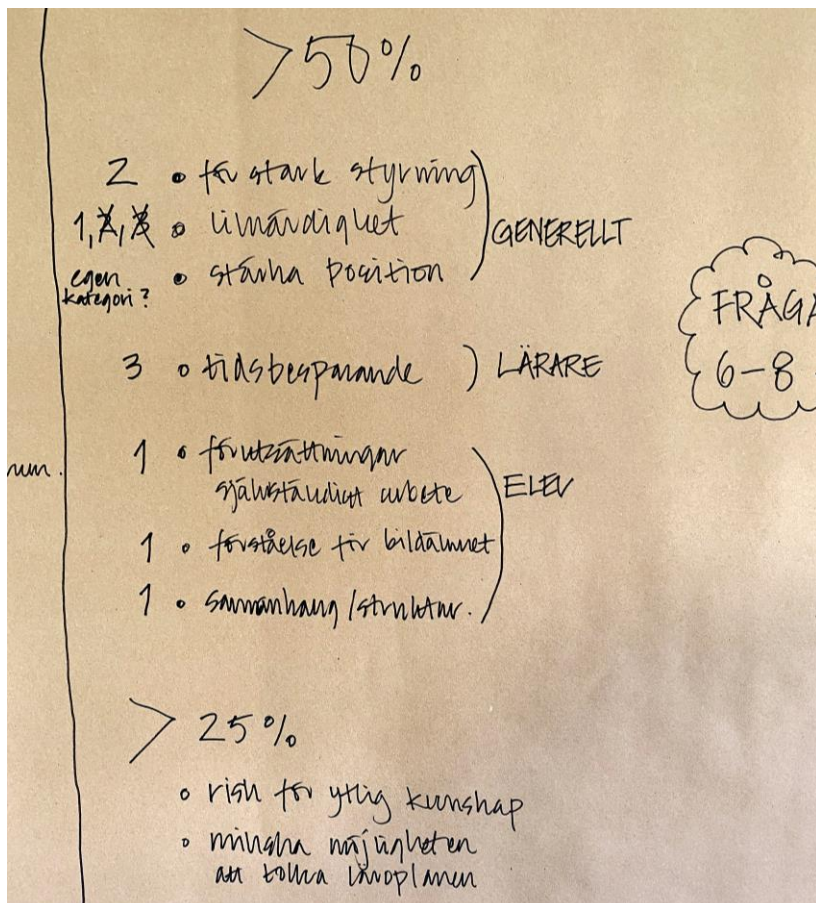 >50%
2 • för stark styrning
1, 2, 3 • likvärdighet
GENERELLT
egen
kategori?
• stärka position
FRÅGA
6-8
3 • tidsbesparande ) LÄRARE
num.
1 • förutsättningar
självständigt arbete
ELEV
1 • förståelse för bildämnet
1 • sammanhang/struktur.
>25%
• risk för ytlig kunskap
• minska möjligheten
att tolka läroplanen